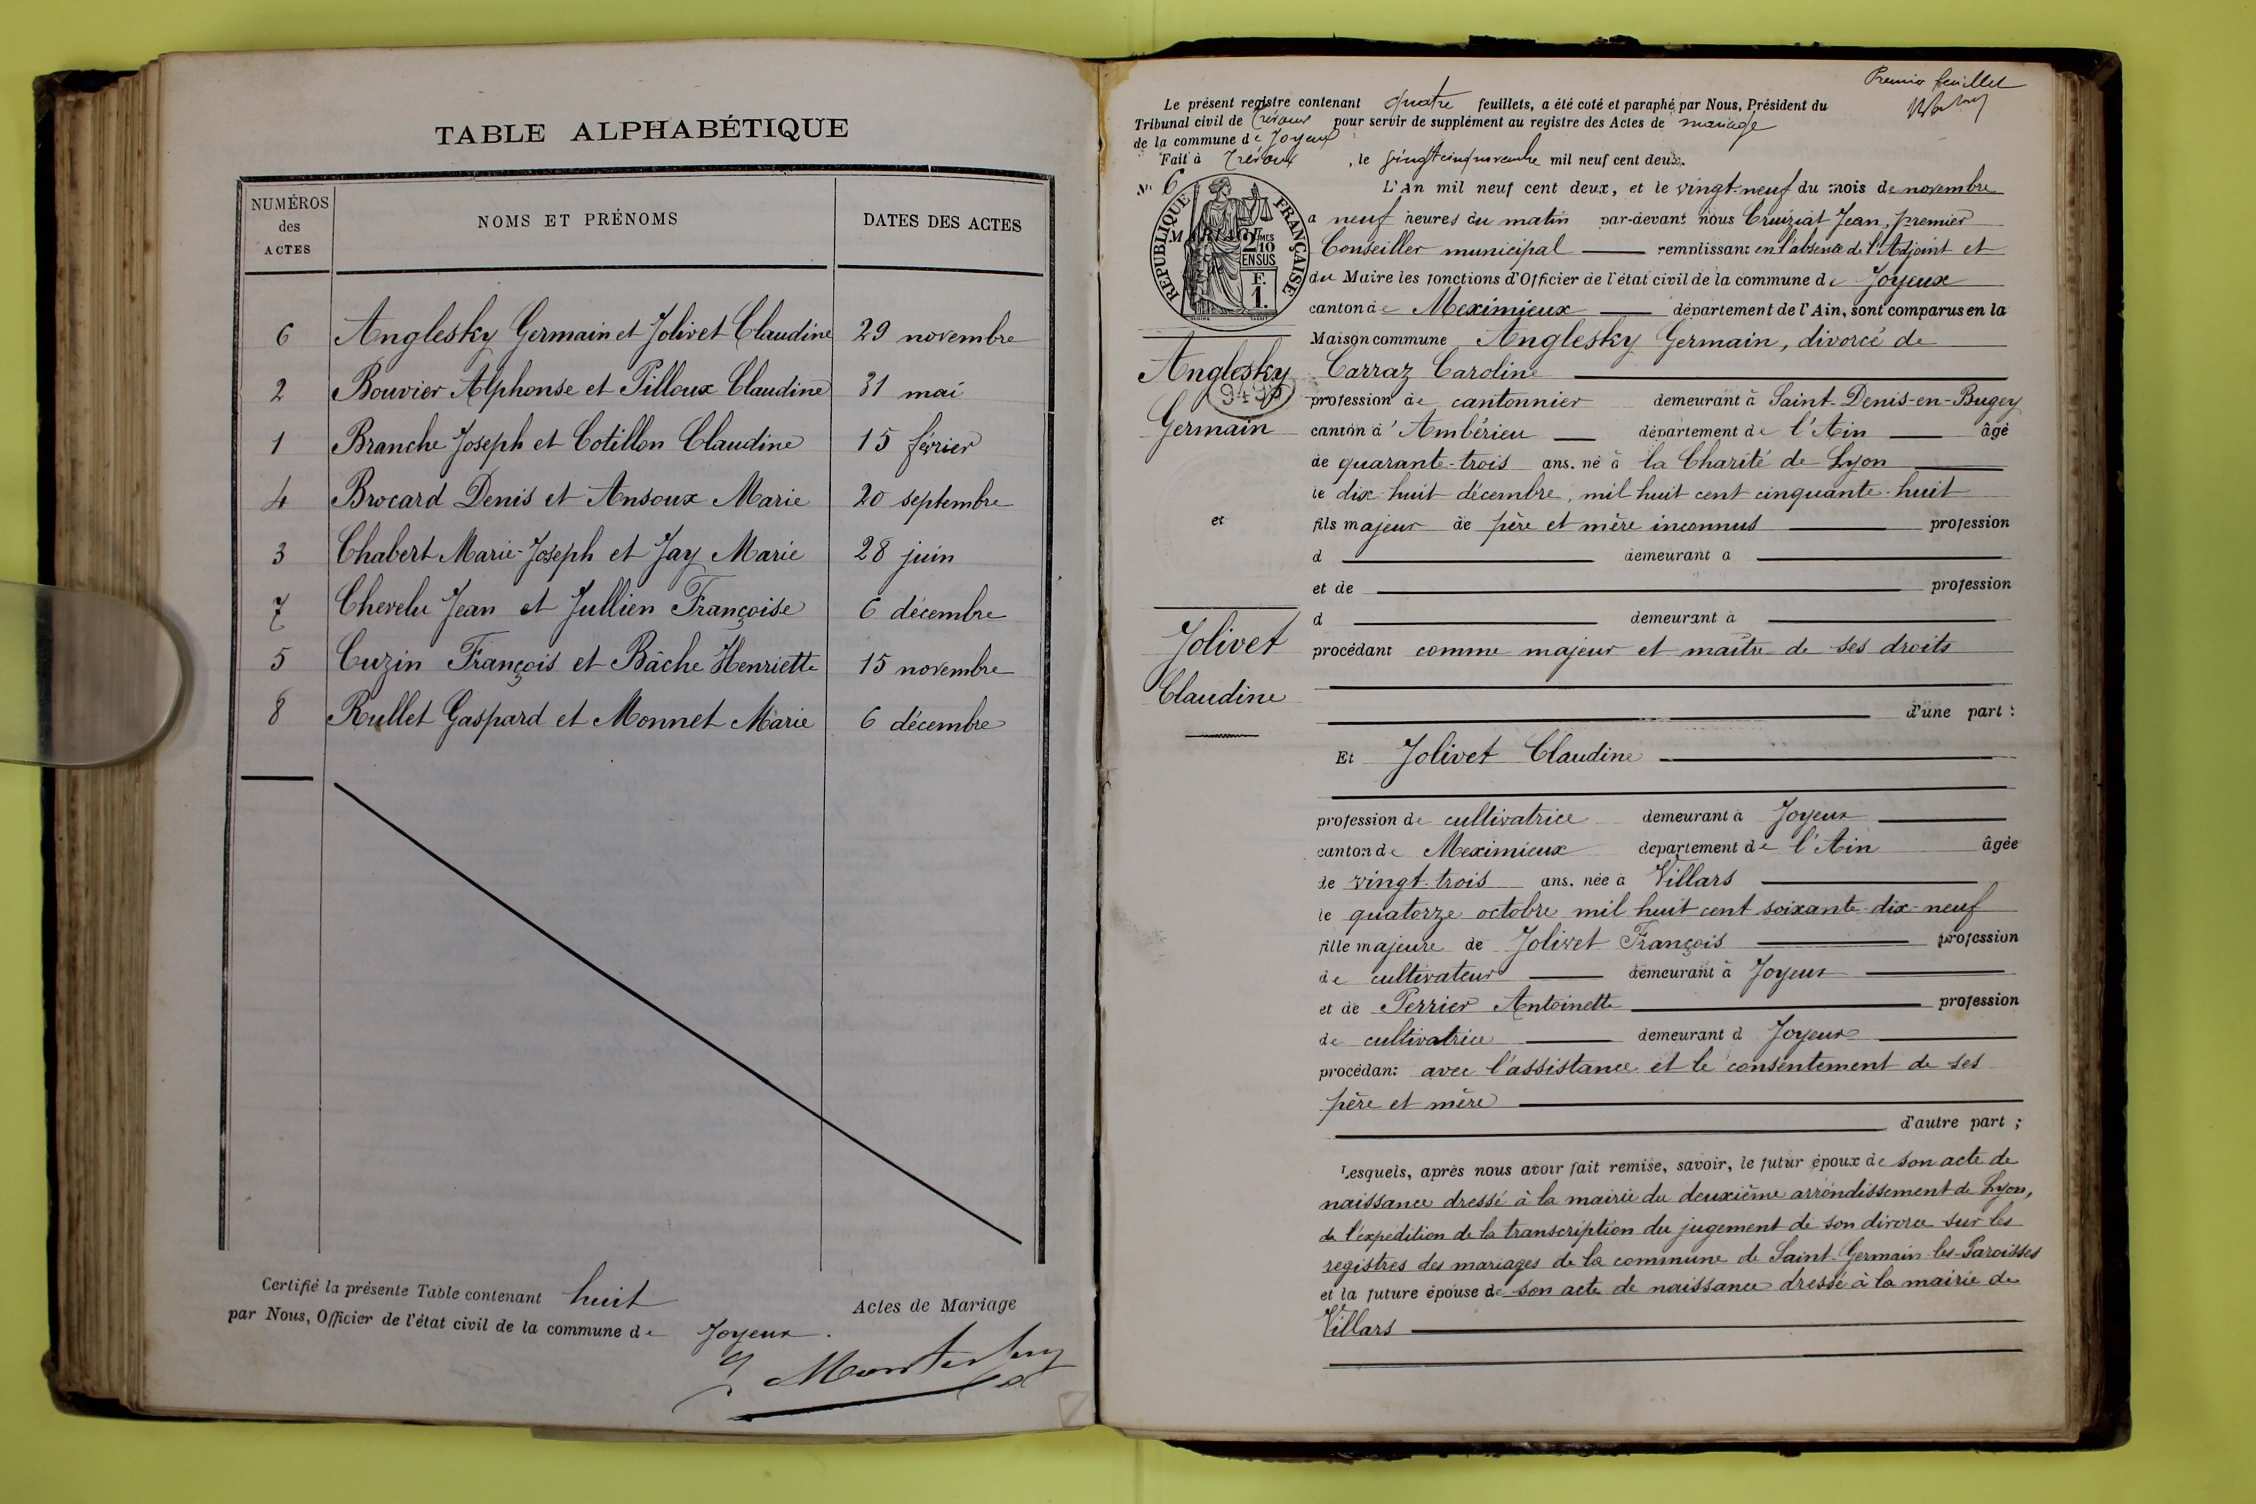 TABLE ALPHABÉTIQUE
NUMÉROS des ACTES NOMS ET PRÉNOMS DATES DES ACTES
6 Anglesky Germain et Jolivet Claudine 29 novembre
2 Bouvier Alphonse et Pilloux Claudine 31 mai
1 Branche Joseph et Cotillon Claudine 15 février
4 Brocard Denis et Ansoux Marie 20 septembre
3 Chabert Marie-Joseph et Jay Marie 28 juin
7 Chevelu Jean et Jullien Françoise 6 décembre
5 Cuzin François et Bâche Henriette 15 novembre
8 Rullet Gaspard et Monnet Marie 6 décembre
Certifié la présente Table contenant huit Actes de Mariage
par Nous, Officier de l'état civil de la commune de Joyeux.
Premier feuillet
Le présent registre contenant quatre feuillets, a été coté et paraphé par Nous, Président du
Tribunal civil de Trévoux pour servir de supplément au registre des Actes de mariage
de la commune de Joyeux
Fait à Trévoux, le vingt cinq novembre mil neuf cent deux.
N° 6
RÉPUBLIQUE FRANÇAISE
MARIAGE
2/10 EN SUS
F. 1.
Anglesky
949
Germain
et
Jolivet
Claudine
L'An mil neuf cent deux, et le vingt-neuf du mois de novembre
a neuf heures du matin par-devant nous Cruiziat Jean, premier
Conseiller municipal remplissant en l'absence de l'Adjoint et
du Maire les fonctions d'Officier de l'état civil de la commune de Joyeux
canton de Meximieux département de l'Ain, sont comparus en la
Maison commune Anglesky Germain, divorcé de
Carraz Caroline
profession de cantonnier demeurant à Saint-Denis-en-Bugey
canton d'Ambérieu département de l'Ain âgé
de quarante-trois ans. né à la Charité de Lyon
le dix-huit décembre, mil huit cent cinquante-huit
fils majeur de père et mère inconnus profession
d demeurant a
et de profession
d demeurant à
procédant comme majeur et maître de ses droits
d'une part :
Et Jolivet Claudine
profession de cultivatrice demeurant à Joyeux
canton de Meximieux département de l'Ain âgée
de vingt-trois ans. née à Villars
le quatorze octobre mil huit cent soixante-dix-neuf
fille majeure de Jolivet François profession
de cultivateur demeurant à Joyeux
et de Perrier Antoinette profession
de cultivatrice demeurant à Joyeux
procédant avec l'assistance et le consentement de ses
père et mère
d'autre part ;
Lesquels, après nous avoir fait remise, savoir, le futur époux de son acte de
naissance dressé à la mairie du deuxième arrondissement de Lyon,
de l'expédition de la transcription du jugement de son divorce sur les
registres des mariages de la commune de Saint-Germain-les-Paroisses
et la future épouse de son acte de naissance dressé à la mairie de
Villars